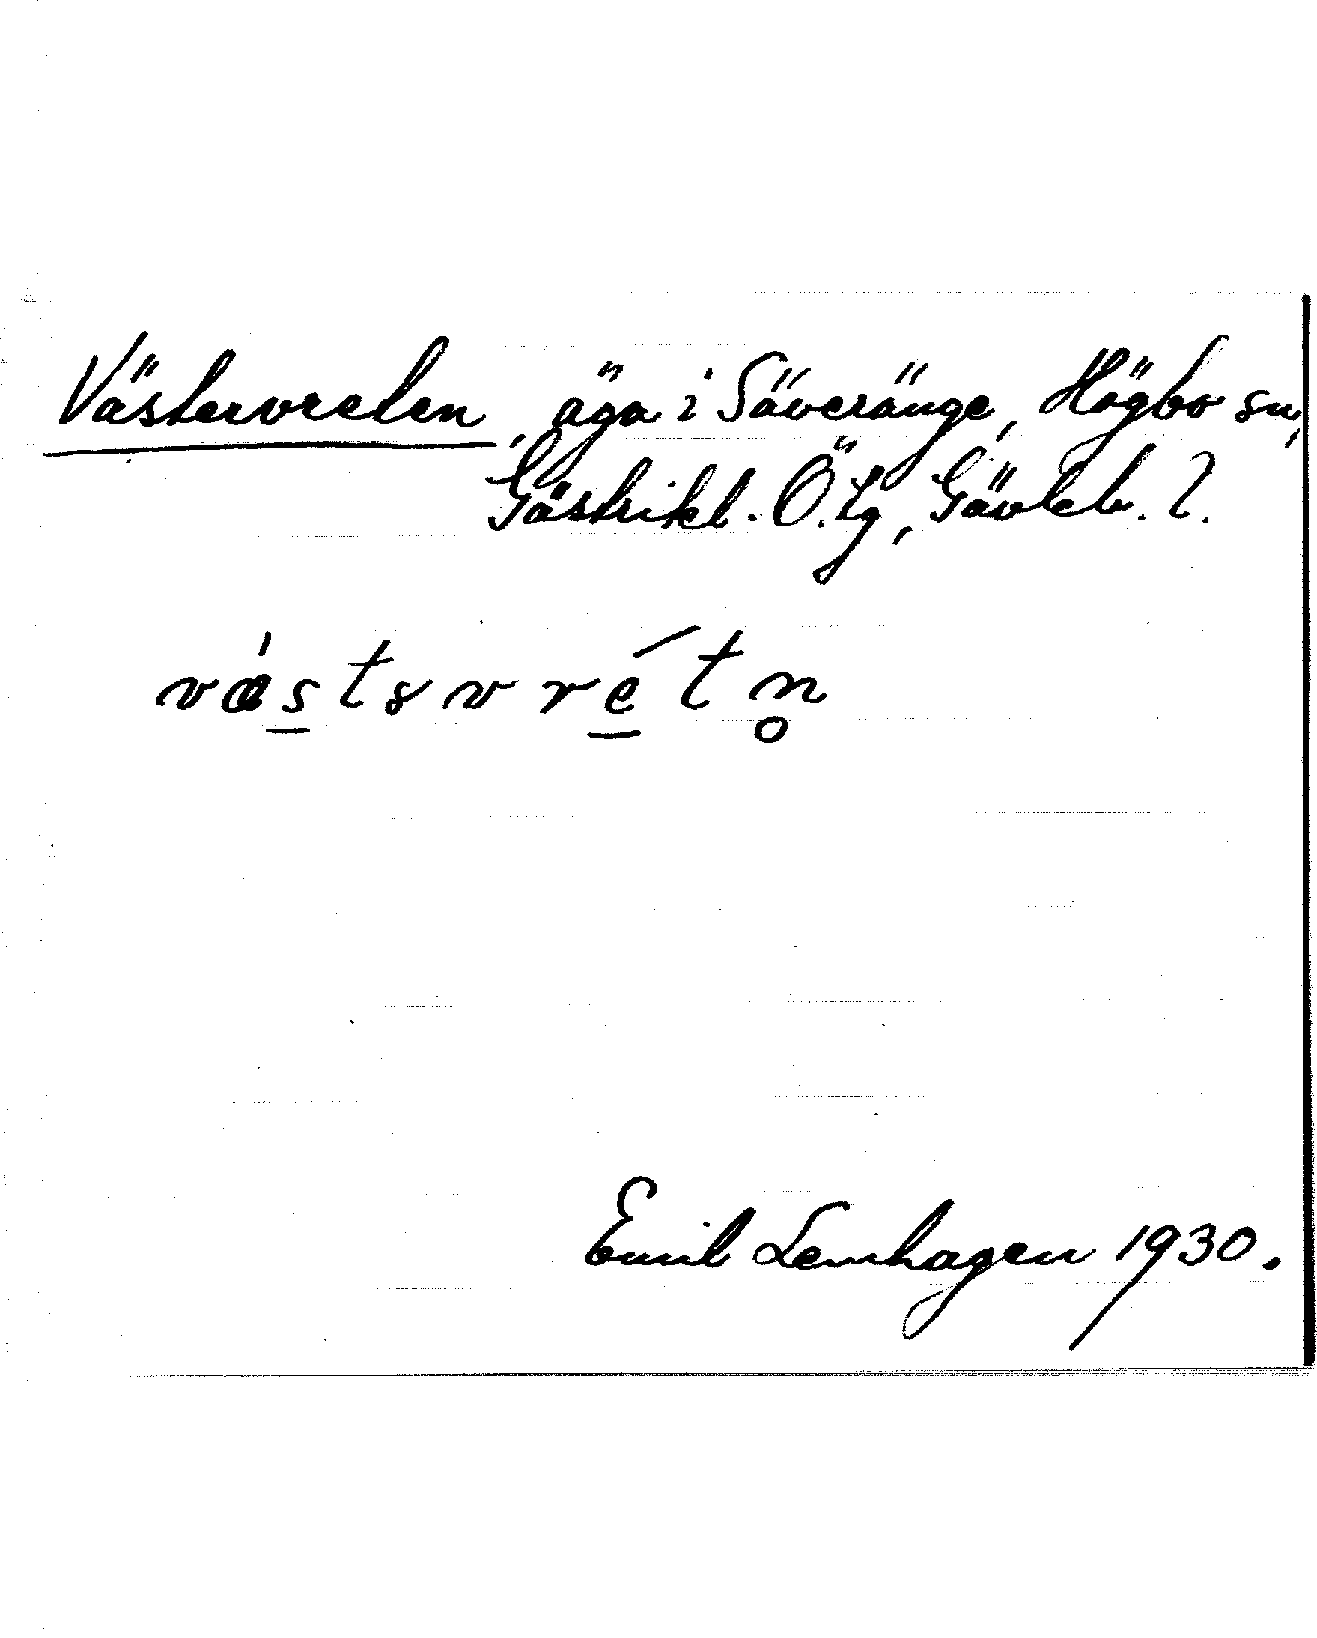 Västervreten, äga i Säveränge, Högbo sn,
Gästrikl. Ö. tg, Gävleb. l.
væ̀stəvrétn̥
Emil Lemhagen 1930.